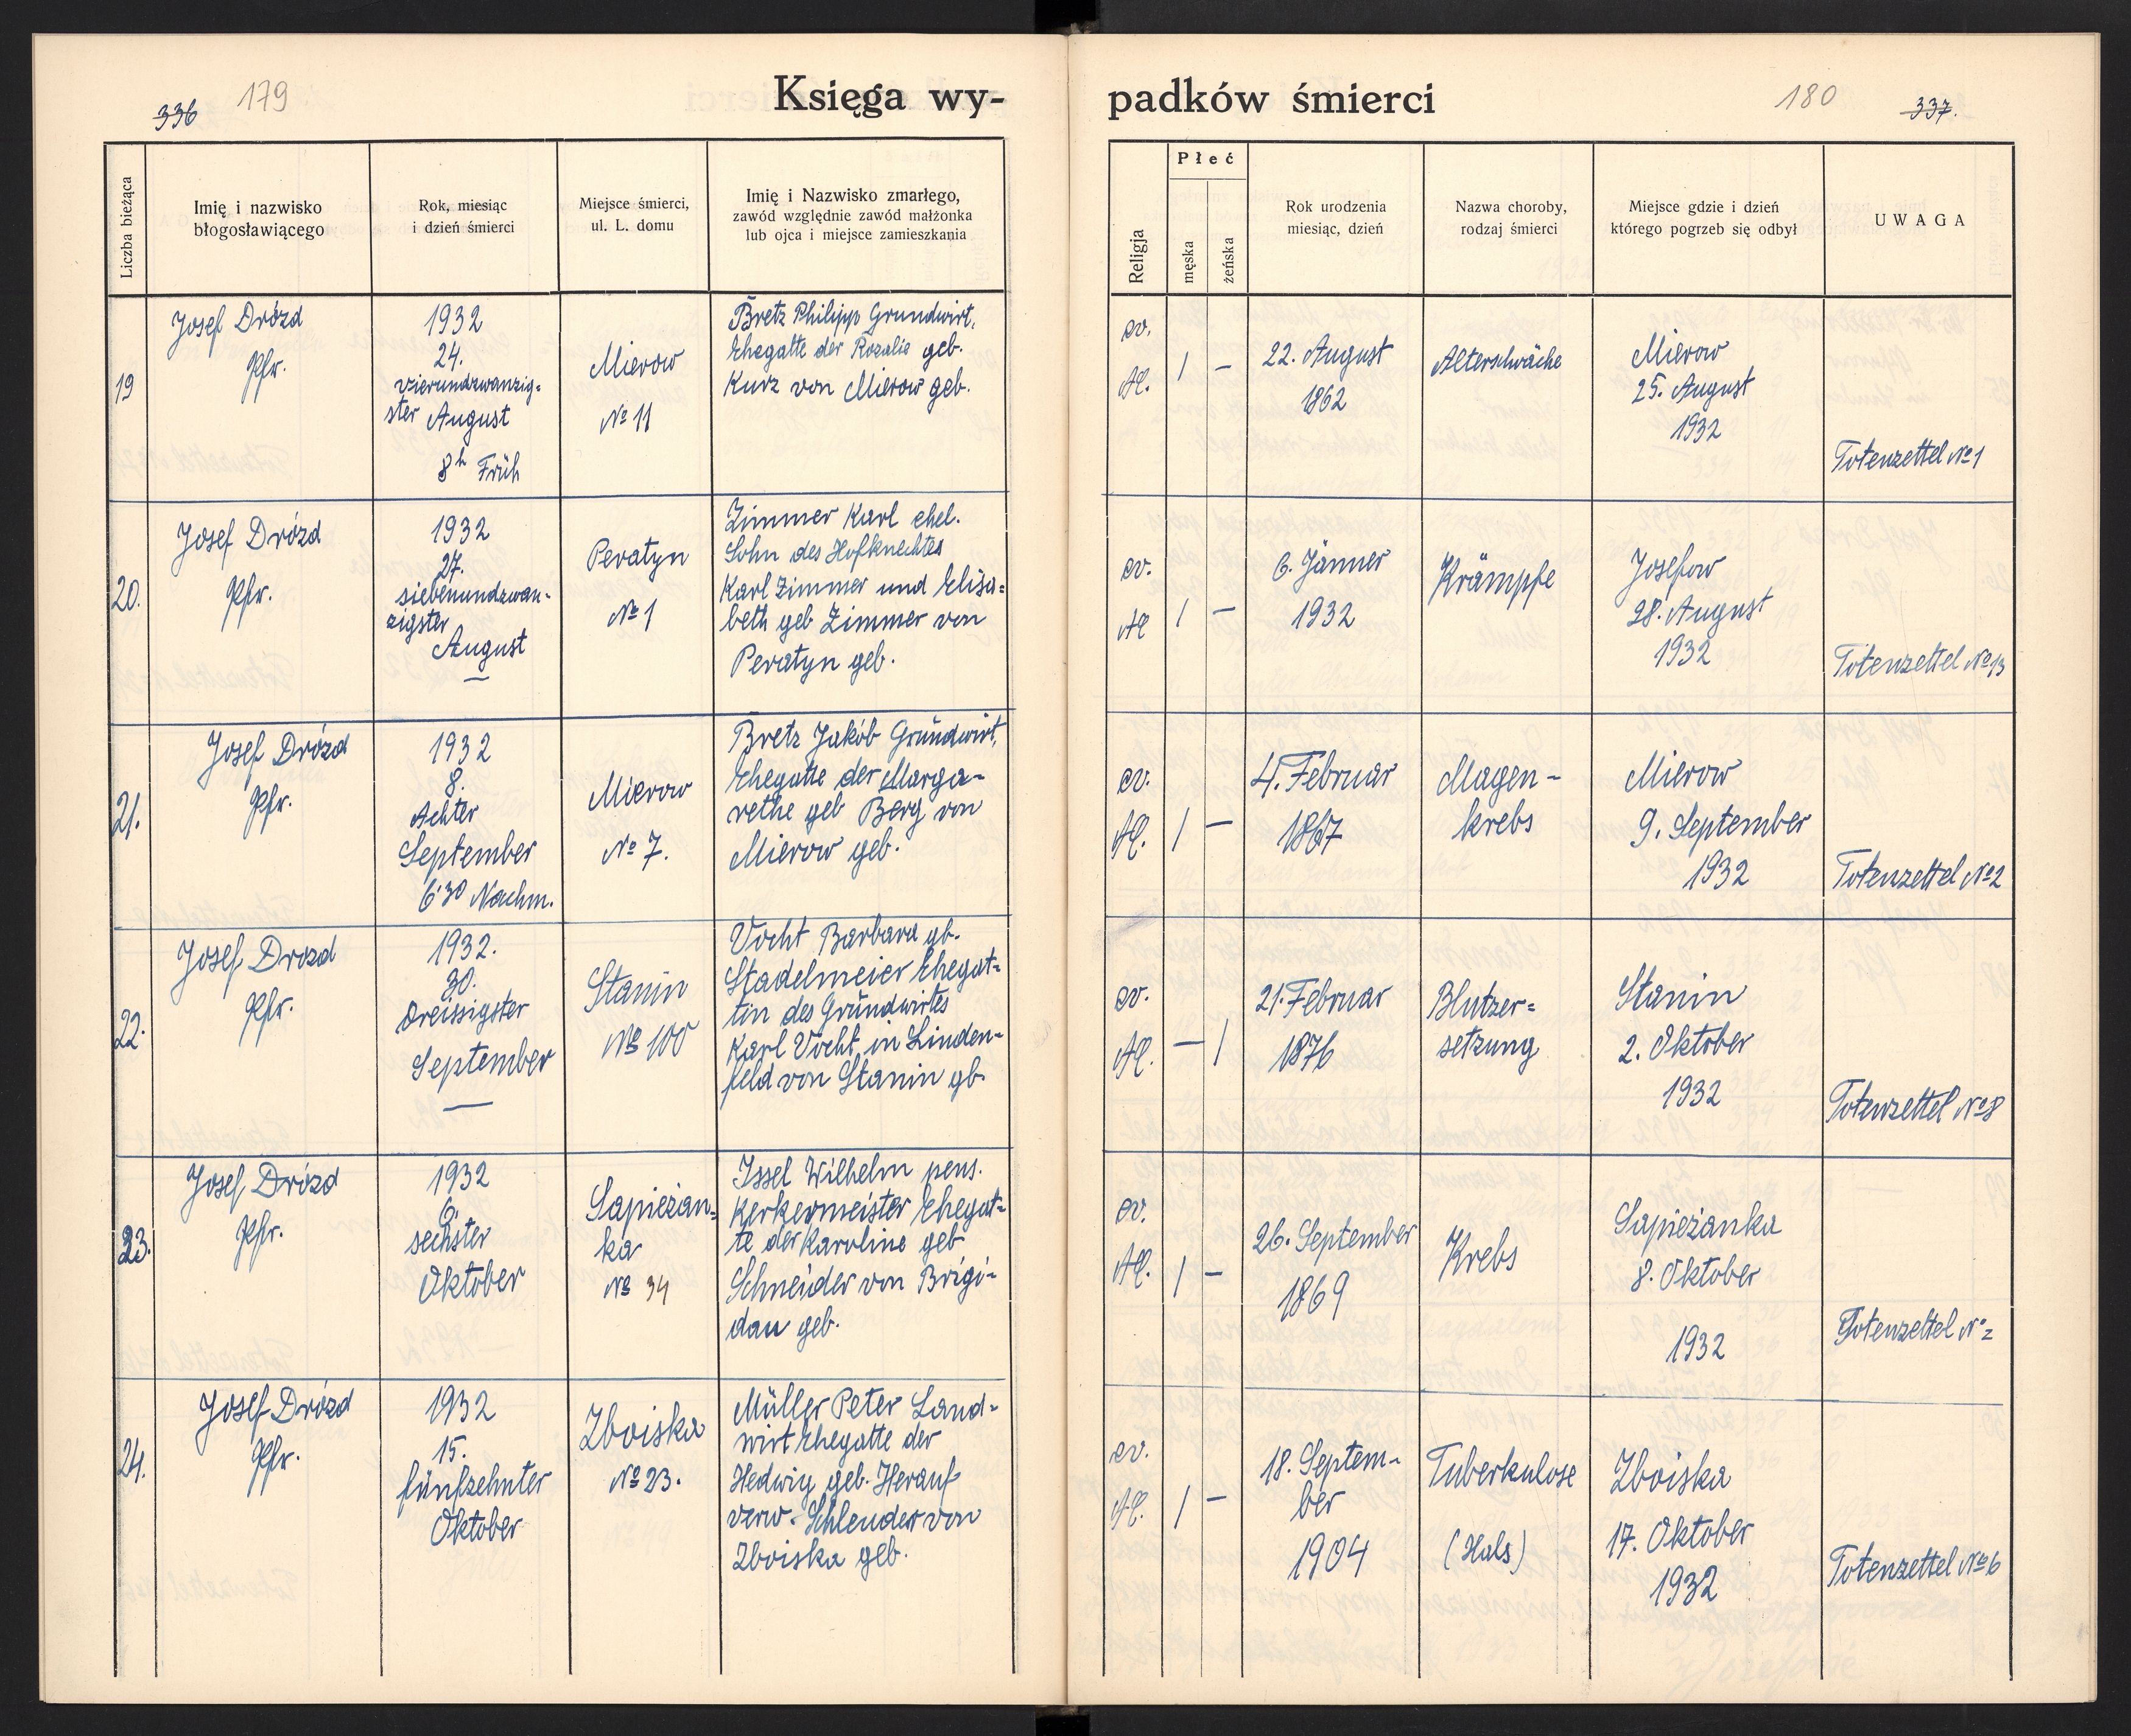 336 179
Księga wy-
Liczba bieżąca
Imię i nazwisko
błogosławiącego
Rok, miesiąc
i dzień śmierci
Miejsce śmierci,
ul. L. domu
Imię i Nazwisko zmarłego,
zawód względnie zawód małżonka
lub ojca i miejsce zamieszkania
19
Josef Drózd
Pfr.
1932
24.
vierundzwanzig-
ster August
8h Früh
Mierow
No 11
Bretz Philipp Grundwirt,
Ehegatte der Rozalie geb.
Kurz von Mierow geb.
20.
Josef Drózd
Pfr.
1932
27.
siebenundzwan-
zigster
August
Peratyn
No 1
Zimmer Karl ehel.
Sohn des Hofknechtes
Karl Zimmer und Elisa=
beth geb Zimmer von
Peratyn geb.
21.
Josef Drózd
Pfr.
1932
8.
Achter
September
6'30 Nachm.
Mierow
No 7.
Bretz Jakób Grundwirt,
Ehegatte der Marga-
rethe geb Berg von
Mierow geb.
22.
Josef Drozd
Pfr.
1932.
30.
dreissigster
September
Stanin
No 100
Vocht Barbara gb.
Stadelmeier Ehegat=
tin des Grundwirtes
Karl Vocht in Linden-
feld von Stanin gb.
23.
Josef Drózd
Pfr.
1932
6.
sechster
Oktober
Sapieżan=
ka
No 34
Issel Wilhelm pens.
Kerkermeister Ehegat=
te der Karoline geb
Schneider von Brigi-
dau geb.
24.
Josef Drózd
Pfr.
1932
15.
fünfzehnter
Oktober
Zboiska
No 23.
Müller Peter Land=
wirt Ehegatte der
Hedwig geb. Herauf
verw. Schlender von
Zboiska geb.
padków śmierci
180 337.
Religja
Płeć
męska
żeńska
Rok urodzenia
miesiąc, dzień
Nazwa choroby,
rodzaj śmierci
Miejsce gdzie i dzień
którego pogrzeb się odbył
UWAGA
ev.
AC.
1 –
22. August
1862
Alterschwäche
Mierow
25. August
1932
Totenzettel No 1
ev.
AC
1 –
6. Jänner
1932
Krämpfe
Josefow
28. August
1932
Totenzettel No 13
ev.
AC.
1 –
4. Februar
1867
Magen-
krebs
Mierow
9. September
1932
Totenzettel No 2
ev.
AC.
– 1
21. Februar
1876
Blutzer=
setzung
Stanin
2. Oktober
1932
Totenzettel No 8
ev.
AC.
1 –
26. September
1869
Krebs
Sapieżanka
8. Oktober
1932
Totenzettel No 2
ev.
AC.
1 –
18. Septem-
ber
1904
Tuberkulose
(Hals)
Zboiska
17. Oktober
1932
Totenzettel No 6